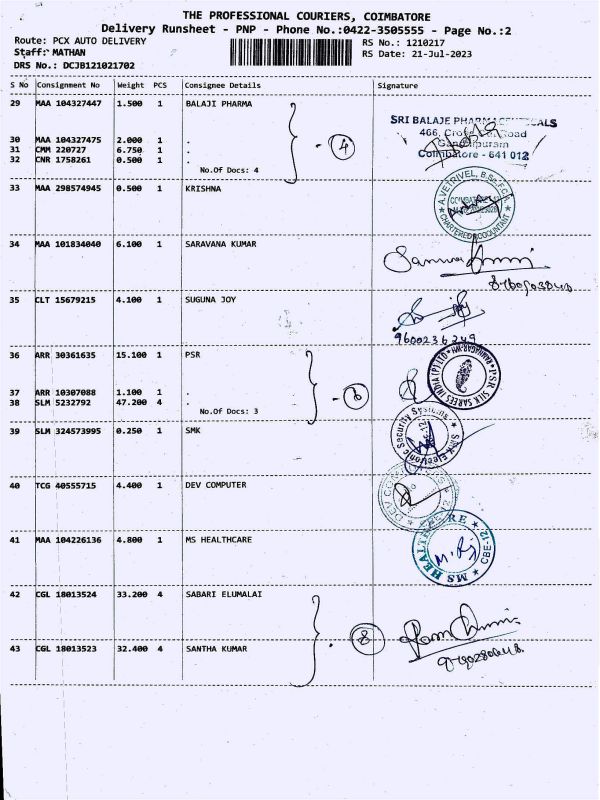 THE PROFESSIONAL COURIERS, COIMBATORE
Delivery Runsheet - PNP - Phone No.:0422-3505555 - Page No.:2
Route: PCX AUTO DELIVERY
RS No.: 1210217
Staff: MATHAN
RS Date: 21-Jul-2023
DRS No.: DCJB121021702
S No Consignment No Weight PCS Consignee Details Signature
29 MAA 104327447 1.500 1 BALAJI PHARMA
SRI BALAJE PHARMACEUTICALS
466, Cross Cut Road
Gandhipuram
Coimbatore - 641 012
30 MAA 104327475 2.000 1 .
31 CMM 220727 6.750 1 .
32 CNR 1758261 0.500 1 .
No.Of Docs: 4
4
33 MAA 298574945 0.500 1 KRISHNA
A.VETRIVEL, B.Sc., F.C.A.
CHARTERED ACCOUNTANT
34 MAA 101834040 6.100 1 SARAVANA KUMAR
35 CLT 15679215 4.100 1 SUGUNA JOY
9600236249
36 ARR 30361635 15.100 1 PSR
P.S.R. SILK SAREES INDIA (P) LTD
37 ARR 10307088 1.100 1 .
38 SLM 5232792 47.200 4 .
No.Of Docs: 3
39 SLM 324573995 0.250 1 SMK
SMK Electronic Security Systems
40 TCG 40555715 4.400 1 DEV COMPUTER
DEV COMPUTERS
41 MAA 104226136 4.800 1 MS HEALTHCARE
MS HEALTHCARE
CBE-12
42 CGL 18013524 33.200 4 SABARI ELUMALAI
8
43 CGL 18013523 32.400 4 SANTHA KUMAR